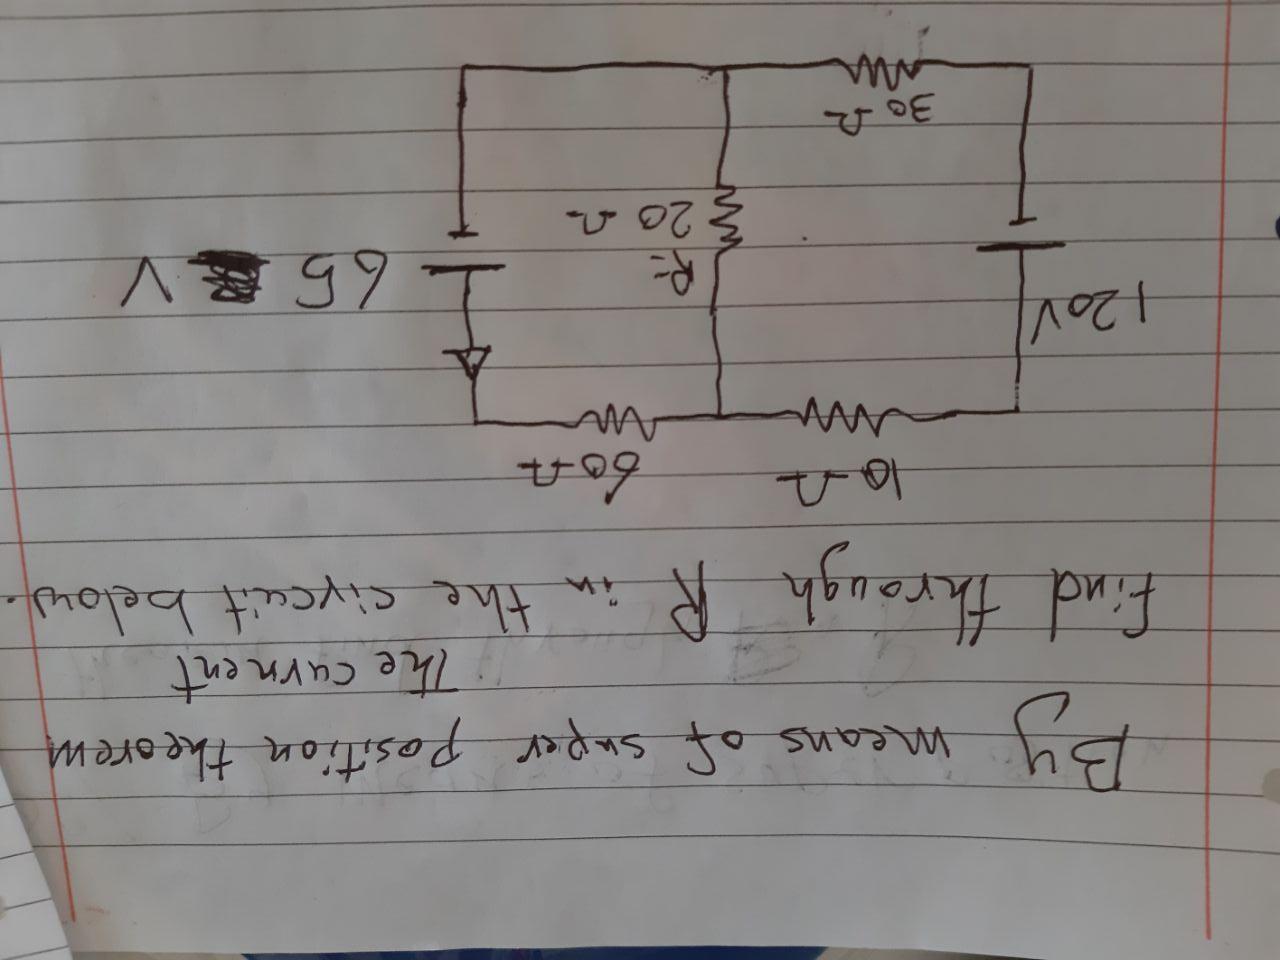 By means of super position theorem
The curnent
find through R in the circuit below.
10 Ω
60 Ω
120V
R=
20 Ω
65 V
30 Ω